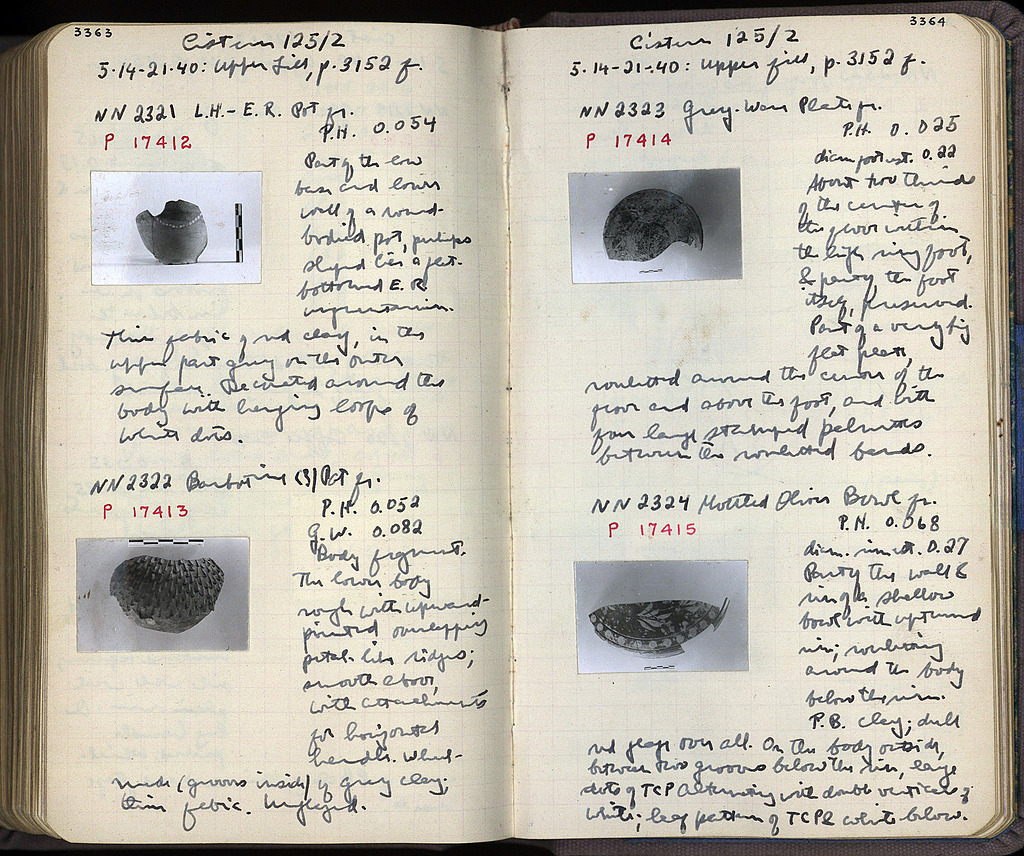 3363
Cistern 125/2
5-14-21-40: Upper fill, p. 3152 f.
NN 2321 L.H.-E.R. Pot fr.
P 17412
P.H. 0.054
Part of the low
base and lower
wall of a round-
bodied pot, perhaps
shaped like a flat-
bottomed E.R.
unguentarium.
Thin fabric of red clay, in the
upper part grey on the outer
surface. Decorated around the
body with hanging loops of
white dots.
NN 2322 Barbotine (?) Pot fr.
P 17413
P.H. 0.052
G.W. 0.082
Body fragment.
The lower body
rough with upward-
pointed overlapping
petal-like ridges;
smooth above,
with attachments
for horizontal
handle. Wheel-
made (grooves inside) of grey clay;
thin fabric. Unglazed.
3364
Cistern 125/2
5-14-21-40: Upper fill, p. 3152 f.
NN 2323 Grey-Ware Plate fr.
P 17414
P.H. 0.025
diam. foot est. 0.22
About two thirds
of the center of
the floor within
the high ring foot,
& part of the foot
itself, preserved.
Part of a very big
flat plate,
rouletted around the center of the
floor and above the foot, and with
four large stamped palmettes
between the rouletted bands.
NN 2324 Mottled Olive Bowl fr.
P 17415
P.H. 0.068
diam. rim est. 0.27
Part of the wall &
rim of a shallow
bowl with upturned
rim; rouletting
around the body
below the rim.
P.B. clay; dull
red glaze over all. On the body outside,
between two grooves below the rim, large
dots of TCP alternating with double verticals of
white; leaf pattern of TCP & white below.